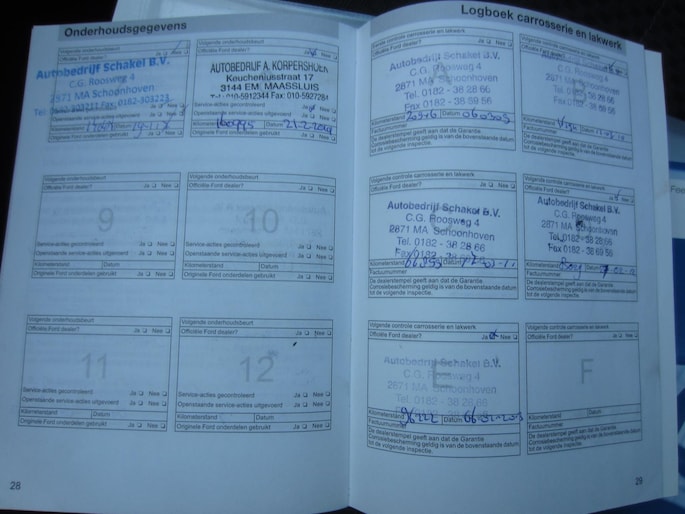 Onderhoudsgegevens
Volgende onderhoudsbeurt
Officiële Ford dealer? Ja Nee
Autobedrijf Schakel B.V.
C.G. Roosweg 4
2871 MA Schoonhoven
Service-acties gecontroleerd Ja Nee
Openstaande service-acties uitgevoerd Ja Nee
Kilometerstand Datum
Originele Ford onderdelen gebruikt Ja Nee
Volgende onderhoudsbeurt
Officiële Ford dealer? Ja Nee
AUTOBEDRIJF A. KORPERSHOEK
Keucheniusstraat 17
3144 EM MAASSLUIS
Tel. 010-5912344 Fax: 010-5927281
Service-acties gecontroleerd Ja Nee
Openstaande service-acties uitgevoerd Ja Nee
Kilometerstand Datum
Originele Ford onderdelen gebruikt Ja Nee
Volgende onderhoudsbeurt
Officiële Ford dealer? Ja Nee
9
Service-acties gecontroleerd Ja Nee
Openstaande service-acties uitgevoerd Ja Nee
Kilometerstand Datum
Originele Ford onderdelen gebruikt Ja Nee
Volgende onderhoudsbeurt
Officiële Ford dealer? Ja Nee
10
Service-acties gecontroleerd Ja Nee
Openstaande service-acties uitgevoerd Ja Nee
Kilometerstand Datum
Originele Ford onderdelen gebruikt Ja Nee
Volgende onderhoudsbeurt
Officiële Ford dealer? Ja Nee
11
Service-acties gecontroleerd Ja Nee
Openstaande service-acties uitgevoerd Ja Nee
Kilometerstand Datum
Originele Ford onderdelen gebruikt Ja Nee
Volgende onderhoudsbeurt
Officiële Ford dealer? Ja Nee
12
Service-acties gecontroleerd Ja Nee
Openstaande service-acties uitgevoerd Ja Nee
Kilometerstand Datum
Originele Ford onderdelen gebruikt Ja Nee
28
Logboek carrosserie en lakwerk
Eerste controle carrosserie en lakwerk
Officiële Ford dealer? Ja Nee
Autobedrijf Schakel B.V.
C.G. Roosweg 4
2871 MA Schoonhoven
Tel. 0182 - 38 28 66
Fax 0182 -
Kilometerstand Datum 060303
Factuurnummer
De dealerstempel geeft aan dat de Garantie
Corrosiebescherming geldig is van de bovenstaande datum
tot de volgende inspectie.
Volgende controle carrosserie en lakwerk
Officiële Ford dealer? Ja Nee
Autobedrijf Schakel B.V.
C.G. Roosweg 4
2871 MA Schoonhoven
Kilometerstand Datum
Factuurnummer
De dealerstempel geeft aan dat de Garantie
Corrosiebescherming geldig is van de bovenstaande datum
tot de volgende inspectie.
Volgende controle carrosserie en lakwerk
Officiële Ford dealer? Ja Nee
Autobedrijf Schakel B.V.
C.G. Roosweg 4
2871 MA Schoonhoven
Tel. 0182 - 38 28 66
Fax 0182 -
Kilometerstand Datum
Factuurnummer
De dealerstempel geeft aan dat de Garantie
Corrosiebescherming geldig is van de bovenstaande datum
tot de volgende inspectie.
Volgende controle carrosserie en lakwerk
Officiële Ford dealer? Ja Nee
Autobedrijf Schakel B.V.
C.G. Roosweg 4
2871 MA Schoonhoven
Tel. 0182 - 38 28 66
Fax 0182 -
Kilometerstand Datum
Factuurnummer
De dealerstempel geeft aan dat de Garantie
Corrosiebescherming geldig is van de bovenstaande datum
tot de volgende inspectie.
Volgende controle carrosserie en lakwerk
Officiële Ford dealer? Ja Nee
Autobedrijf Schakel B.V.
C.G. Roosweg 4
2871 MA Schoonhoven
Tel. 0182 - 38 28 66
Fax 0182 -
Kilometerstand 96222 Datum
Factuurnummer
De dealerstempel geeft aan dat de Garantie
Corrosiebescherming geldig is van de bovenstaande datum
tot de volgende inspectie.
Volgende controle carrosserie en lakwerk
Officiële Ford dealer? Ja Nee
F
Kilometerstand Datum
Factuurnummer
De dealerstempel geeft aan dat de Garantie
Corrosiebescherming geldig is van de bovenstaande datum
tot de volgende inspectie.
29